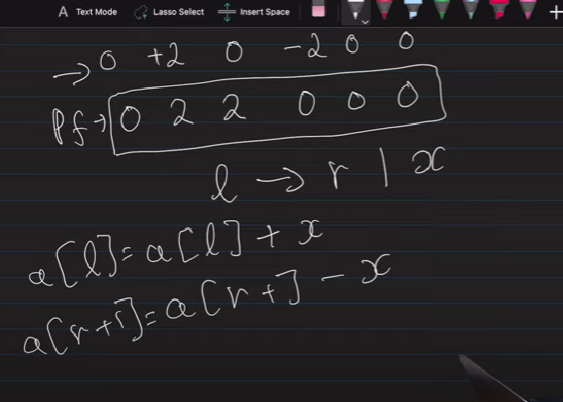 Text Mode Lasso Select Insert Space
→ 0 +2 0 -2 0 0
Pf → 0 2 2 0 0 0
l → r | x
a[l] = a[l] + x
a[r+1] = a[r+] - x